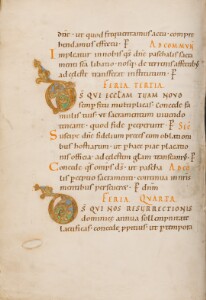 dñe · ut quod frequentamus actu · compre
hendamus effectu · P AD COMMUN
Implicatur nobis quesumus dñe paschalis sacra
menti
ad celeste transferat institutum · P
FERIA TERTIA ·
DS QUI ECCLAM TUAM NOVO
semper fetu multiplicas · Concede fa
mulis tuis · ut sacramentum vivendo
teneant · quod fide perceperunt · P
Suscipe dñe fidelium preces cum oblationi
bus hostiarum · ut per haec piae placatio
nis officia · ad celestem gloriam transeamus · P
Concede qs omps ds · ut pascha
lis perceptio sacramenti · continua in nris
mentibus perseveret · P dnm
FERIA QUARTA ·
DS QUI NOS RESURRECTIONIS
dominice annua sollempnitate
laetificas · concede ppitius · ut p tempora